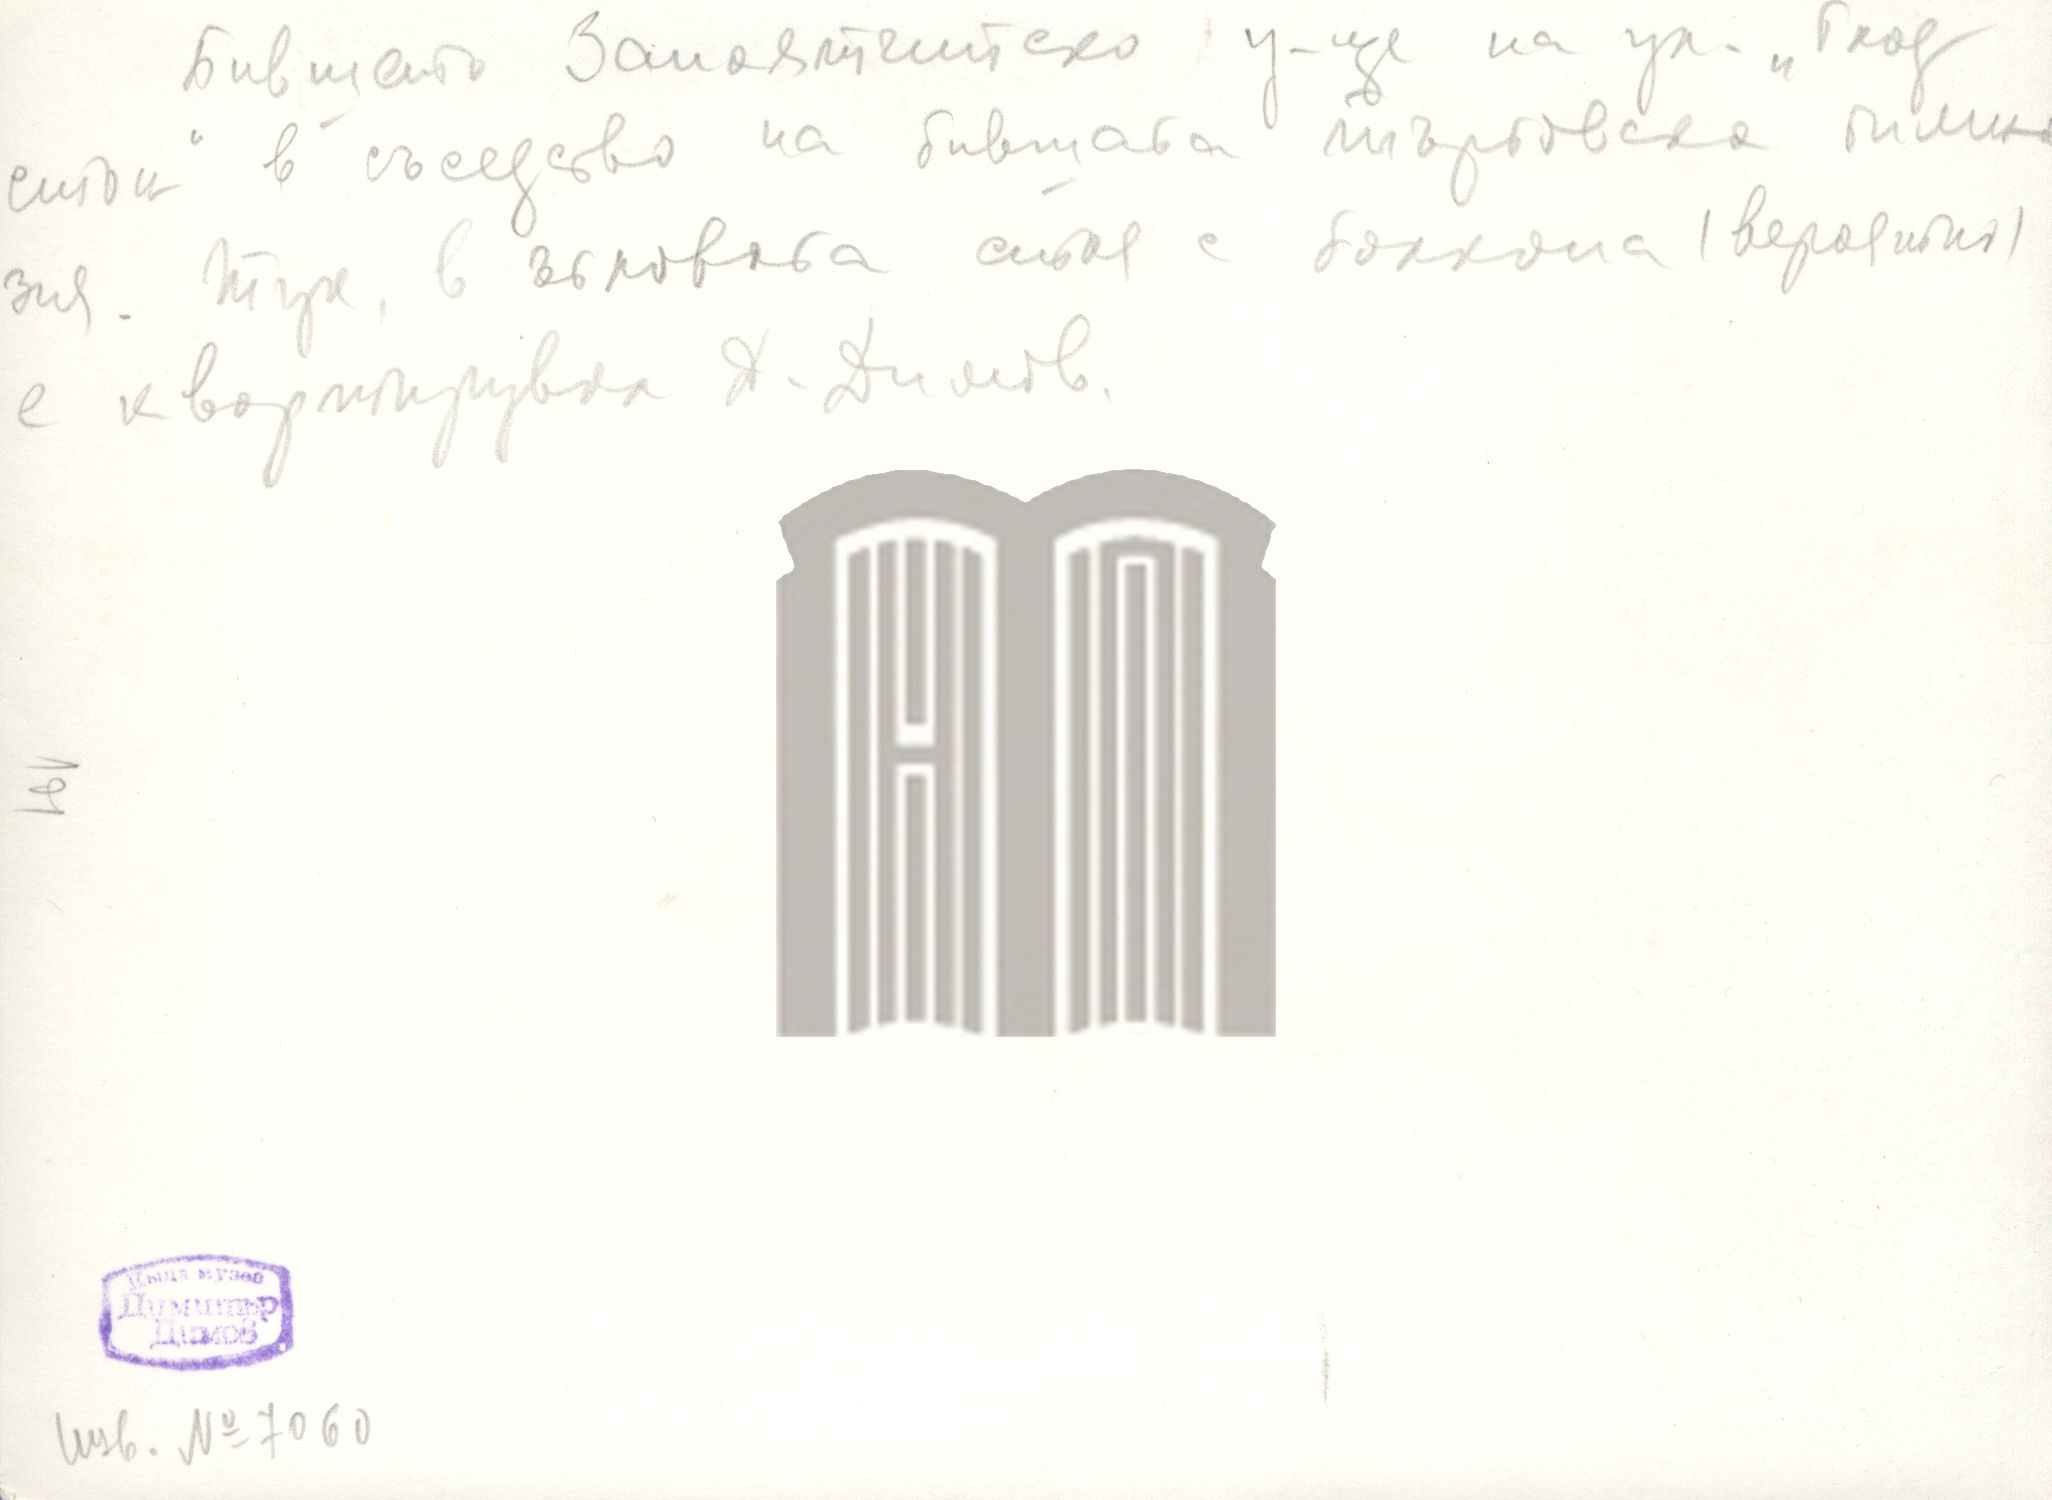 Бившето Занаятчитско у-ще на ул. „Глад
стон“ в съседство на бившата търговска гимна
зия. Тук, в ъгловата стая с балкона (вероятно)
е квартирувал Д. Димов.
Къща музей
Димитър
Димов
Инв. № 7060